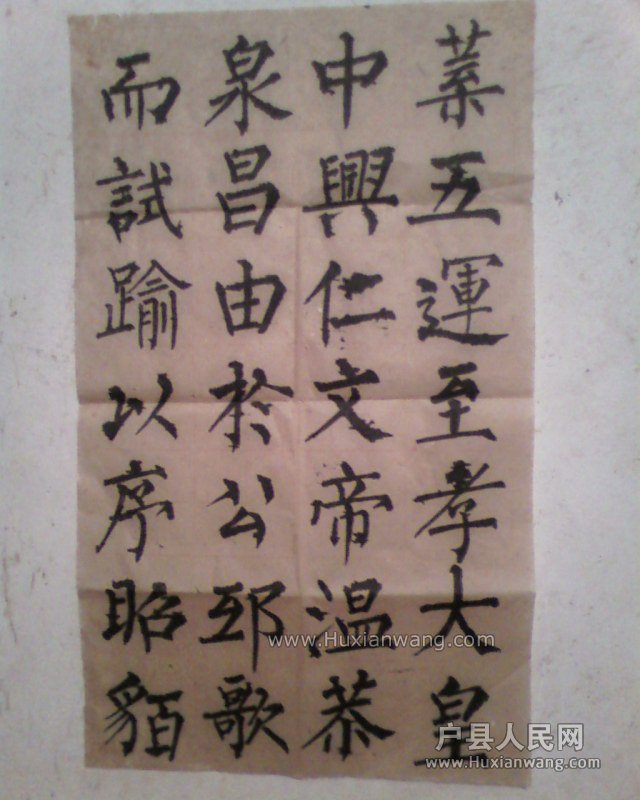 葉五運至孝大皇
中興仁文帝温恭
泉昌由於公邳歌
而試踰以序昭貊
www.Huxianwang.com
户县人民网
www.Huxianwang.com